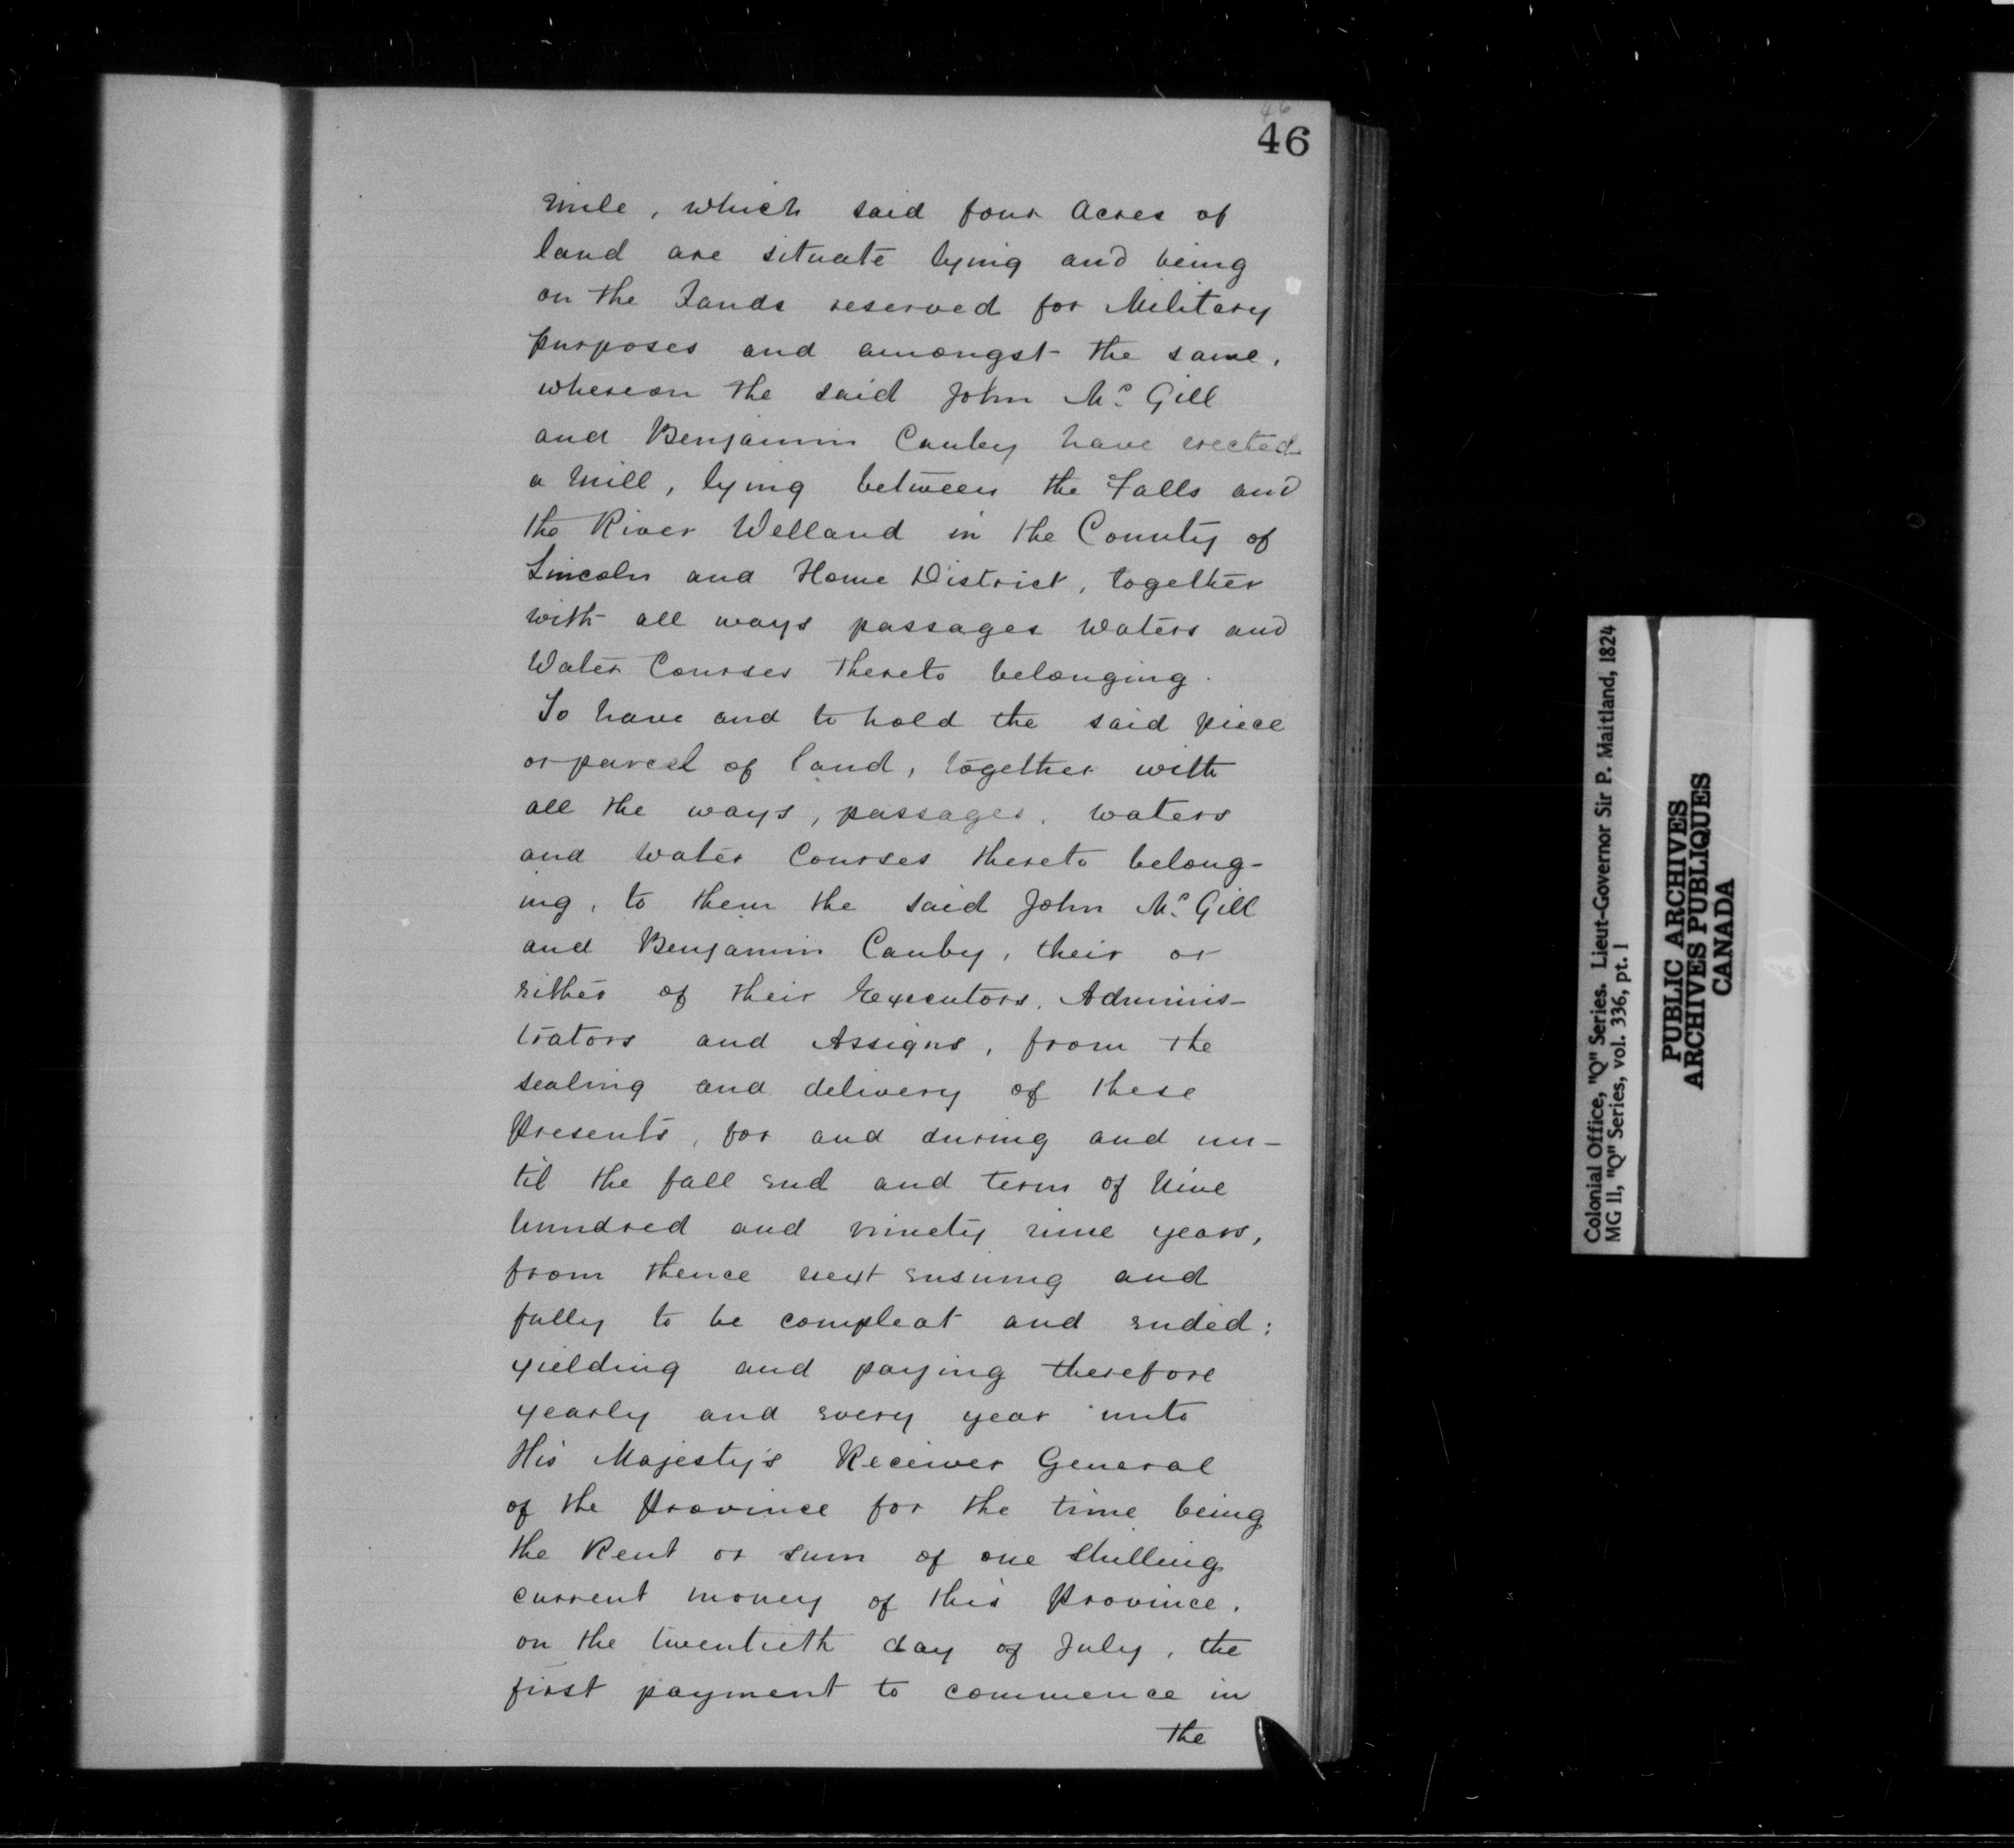 46
46
mile, which said four Acres of
land are situate lying and being
on the Lands reserved for Military
purposes and amongst the same,
whereon the said John Mc. Gill
and Benjamin Canby have erected
a Mill, lying between the Falls and
the River Welland in the County of
Lincoln and Home District, together
with all ways passages Waters and
Water Courses thereto belonging.
To have and to hold the said piece
or parcel of land, together with
all the ways, passages, waters
and water Courses thereto belong-
ing, to them the said John Mc. Gill
and Benjamin Canby, their or
either of their Executors, Adminis-
trators and Assigns, from the
sealing and delivery of these
Presents, for and during and un-
til the full end and term of Nine
hundred and ninety nine years,
from thence next ensuing and
fully to be compleat and ended:
yielding and paying therefore
yearly and every year unto
His Majesty's Receiver General
of the Province for the time being
the Rent or sum of one Shilling
current money of this Province,
on the twentieth day of July, the
first payment to commence in
the
Colonial Office, "Q" Series. Lieut-Governor Sir P. Maitland, 1824
MG 11, "Q" Series, vol. 336, pt. 1
PUBLIC ARCHIVES
ARCHIVES PUBLIQUES
CANADA